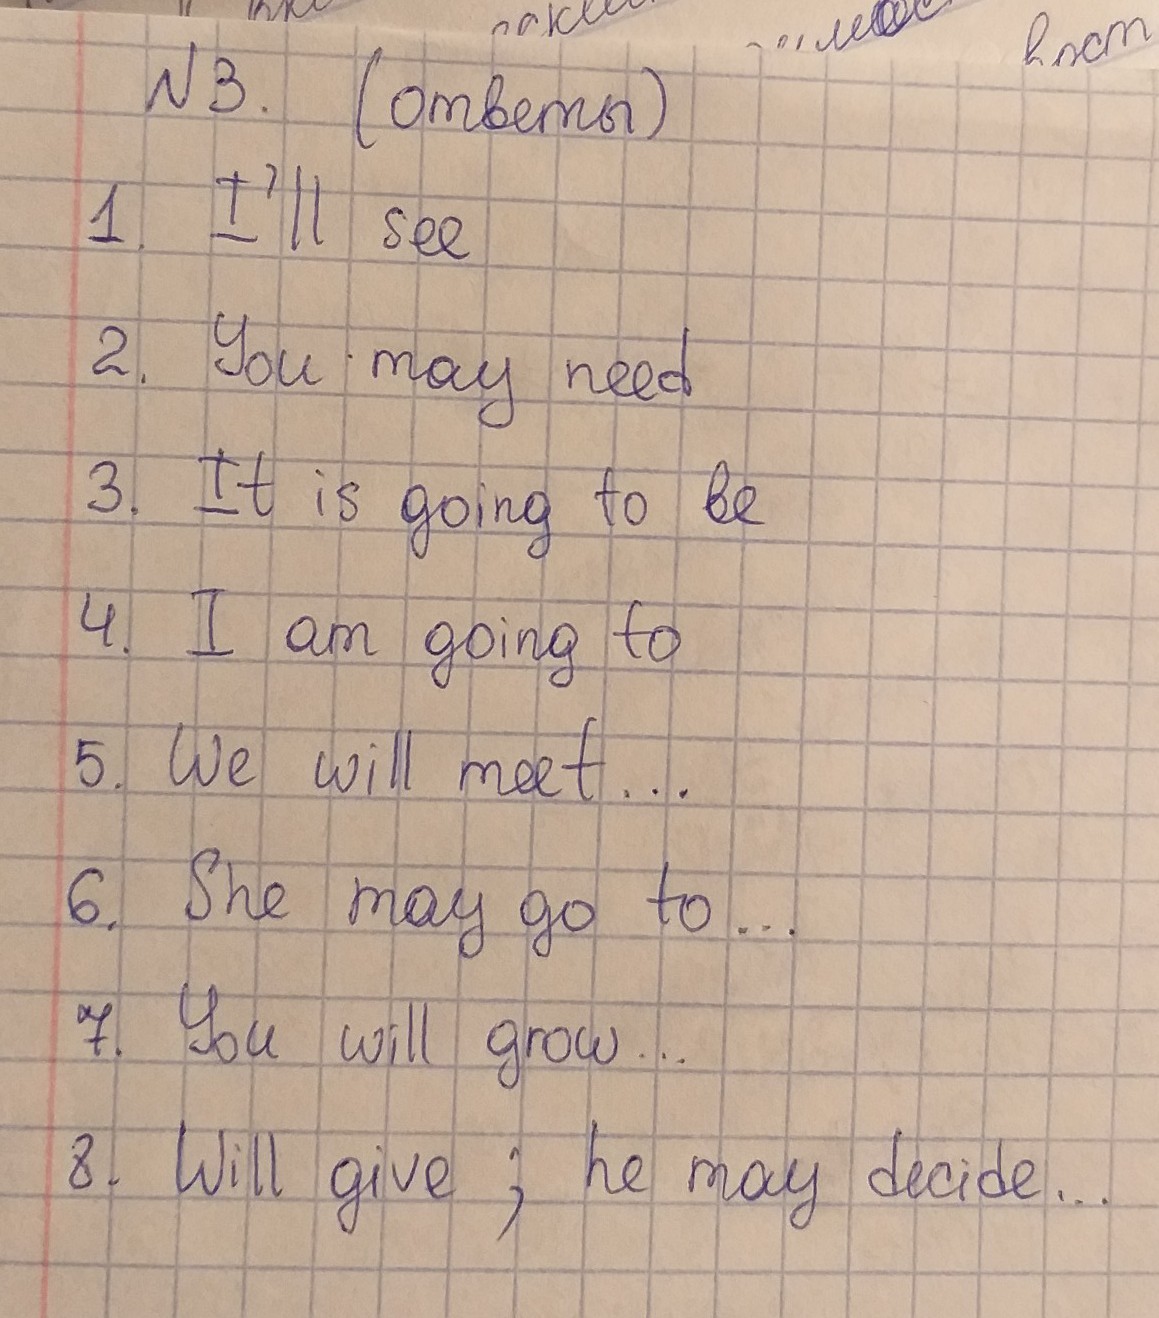 N3. (ответы)
1. I'll see
2. You may need
3. It is going to be
4. I am going to
5. We will meet...
6. She may go to...
7. You will grow...
8. Will give ; he may decide...